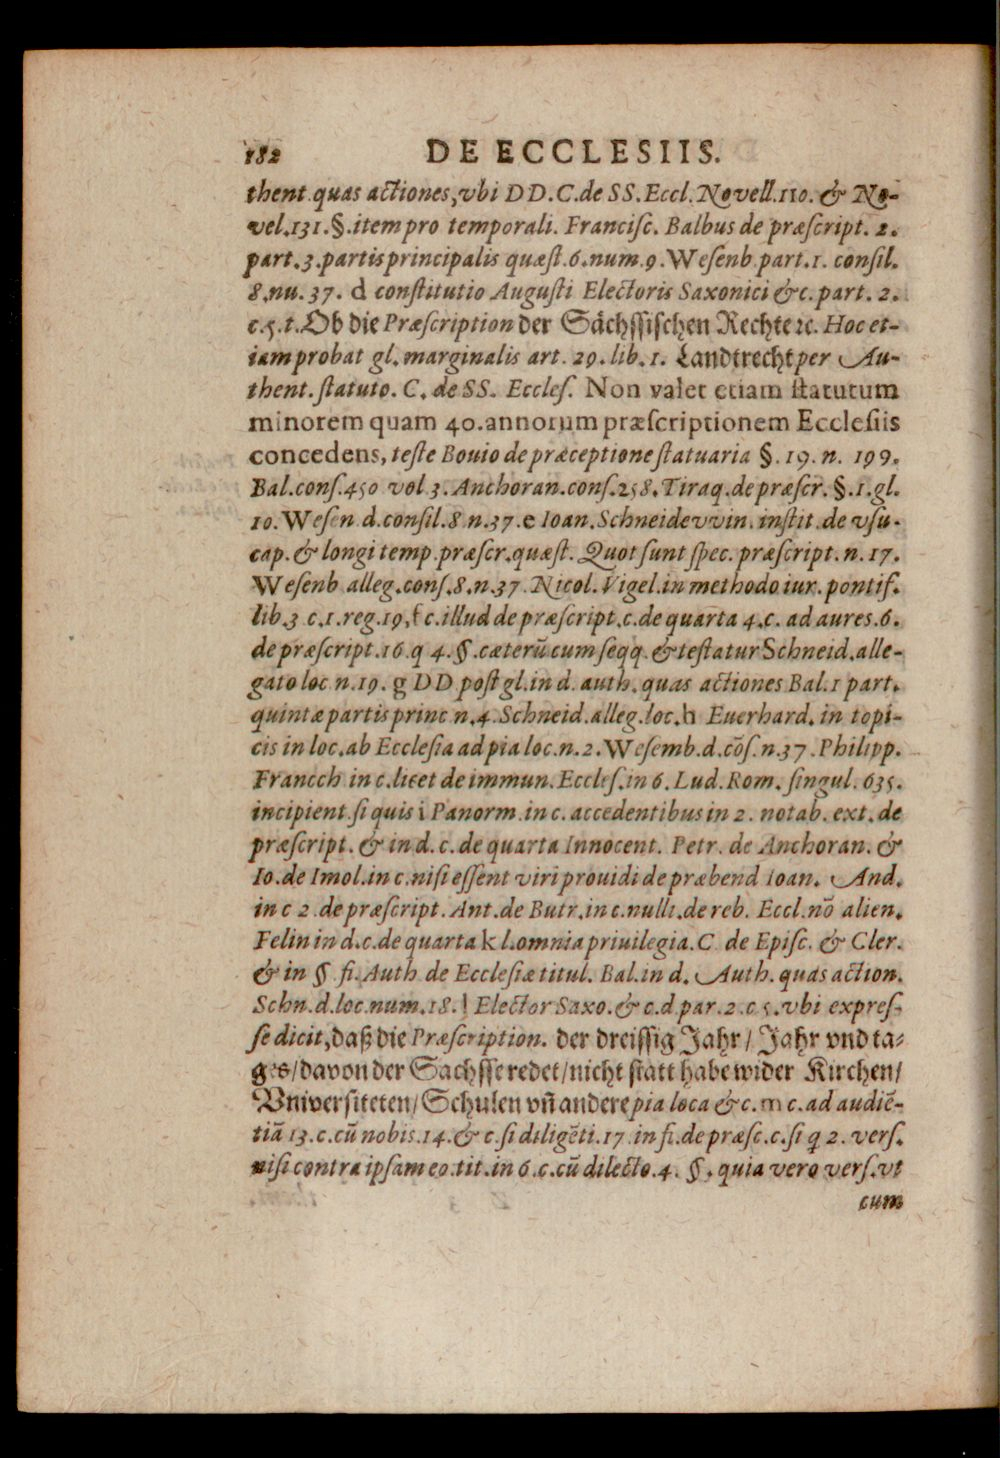 182 DE ECCLESIIS.
thent.quas actiones, vbi DD.C.de SS.Eccl.Novell.110. & No-
vel.131.§.item pro temporali. Francisc. Balbus de præscript. 2.
part.3.partis principalis quæst.6.num.9.Wesenb.part.1. consil.
8.nu.37. d constitutio Augusti Electoris Saxonici &c.part. 2.
c.5.t.Ob die Præscription der Sächssischen Rechte ꝛc. Hoc et-
iam probat gl. marginalis art. 29. lib. 1. Landtrecht per Au-
thent. statuto. C. de SS. Eccles. Non valet etiam statutum
minorem quam 40.annorum præscriptionem Ecclesiis
concedens, teste Bouio de præceptione statuaria §. 19. n. 199.
Bal.cons.450 vol 3. Anchoran.cons.258.Tiraq.de præscr.§.1.gl.
10.Wesen d.consil.8 n.37.e Ioan.Schneidevvin. instit.de vsu-
cap.& longi temp.præscr.quæst. Quot sunt spec. præscript.n.17.
Wesenb alleg.cons.8.n.37. Nicol.Vigel.in methodo iur. pontif.
lib.3 c.1.reg.19.f c.illud de præscript.c.de quarta 4.c. ad aures.6.
de præscript.16.q 4.§.cæterū cum seqq. & testatur Schneid.alle-
gato loc n.19. g DD post gl.in d. auth. quas actiones Bal.1 part.
quintæ partis princ n.4.Schneid.alleg.loc.h Euerhard. in topi-
cis in loc.ab Ecclesia ad pia loc.n.2.Wesemb.d.cōs.n.37.Philipp.
Francch in c.licet de immun.Eccles.in 6.Lud.Rom.singul.635.
incipient.si quis i Panorm.in c. accedentibus in 2. notab. ext. de
præscript. & in d.c.de quarta Innocent. Petr. de Anchoran. &
Io.de Imol.in c.nisi essent viri prouidi de præbend Ioan. And.
in c 2.de præscript. Ant.de Butr.in c.nulli.de reb. Eccl.nō alien.
Felin in d.c.de quarta k l.omnia priuilegia.C de Episc. & Cler.
& in §.fi.Auth de Ecclesiæ titul. Bal.in d. Auth.quas action.
Schn.d.loc.num.18.l Elector Saxo.& c.d par.2.c 5.vbi expres-
se dicit, daß die Præscription. der dreissig Jahr / Jahr vnd ta-
ges/davon der Sachsse redet/nicht statt habe wider Kirchen/
Vniversiteten/Schulen vn̄ andere pia loca &c.m c.ad audiē-
tiā 13.c.cū nobis.14.& c.si diligēti.17.in fi.de præsc.c.si q̨ 2. vers.
nisi contra ipsam eo.tit.in 6.c.cū dilecto.4. §. quia vero vers.vt
cum